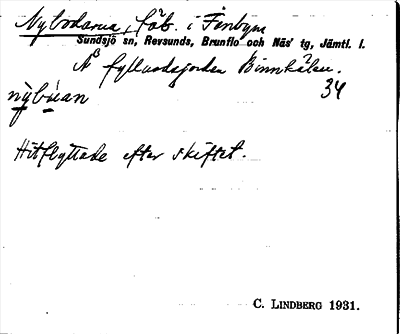 Nybodarna, säb. i Finbyn
Sundsjö sn, Revsunds, Brunflo och Näs' tg, Jämtl. l.
Å fyllnadsjorden Binnkälen.
nỳbúan 34
Hitflyttade efter skiftet.
C. LINDBERG 1931.